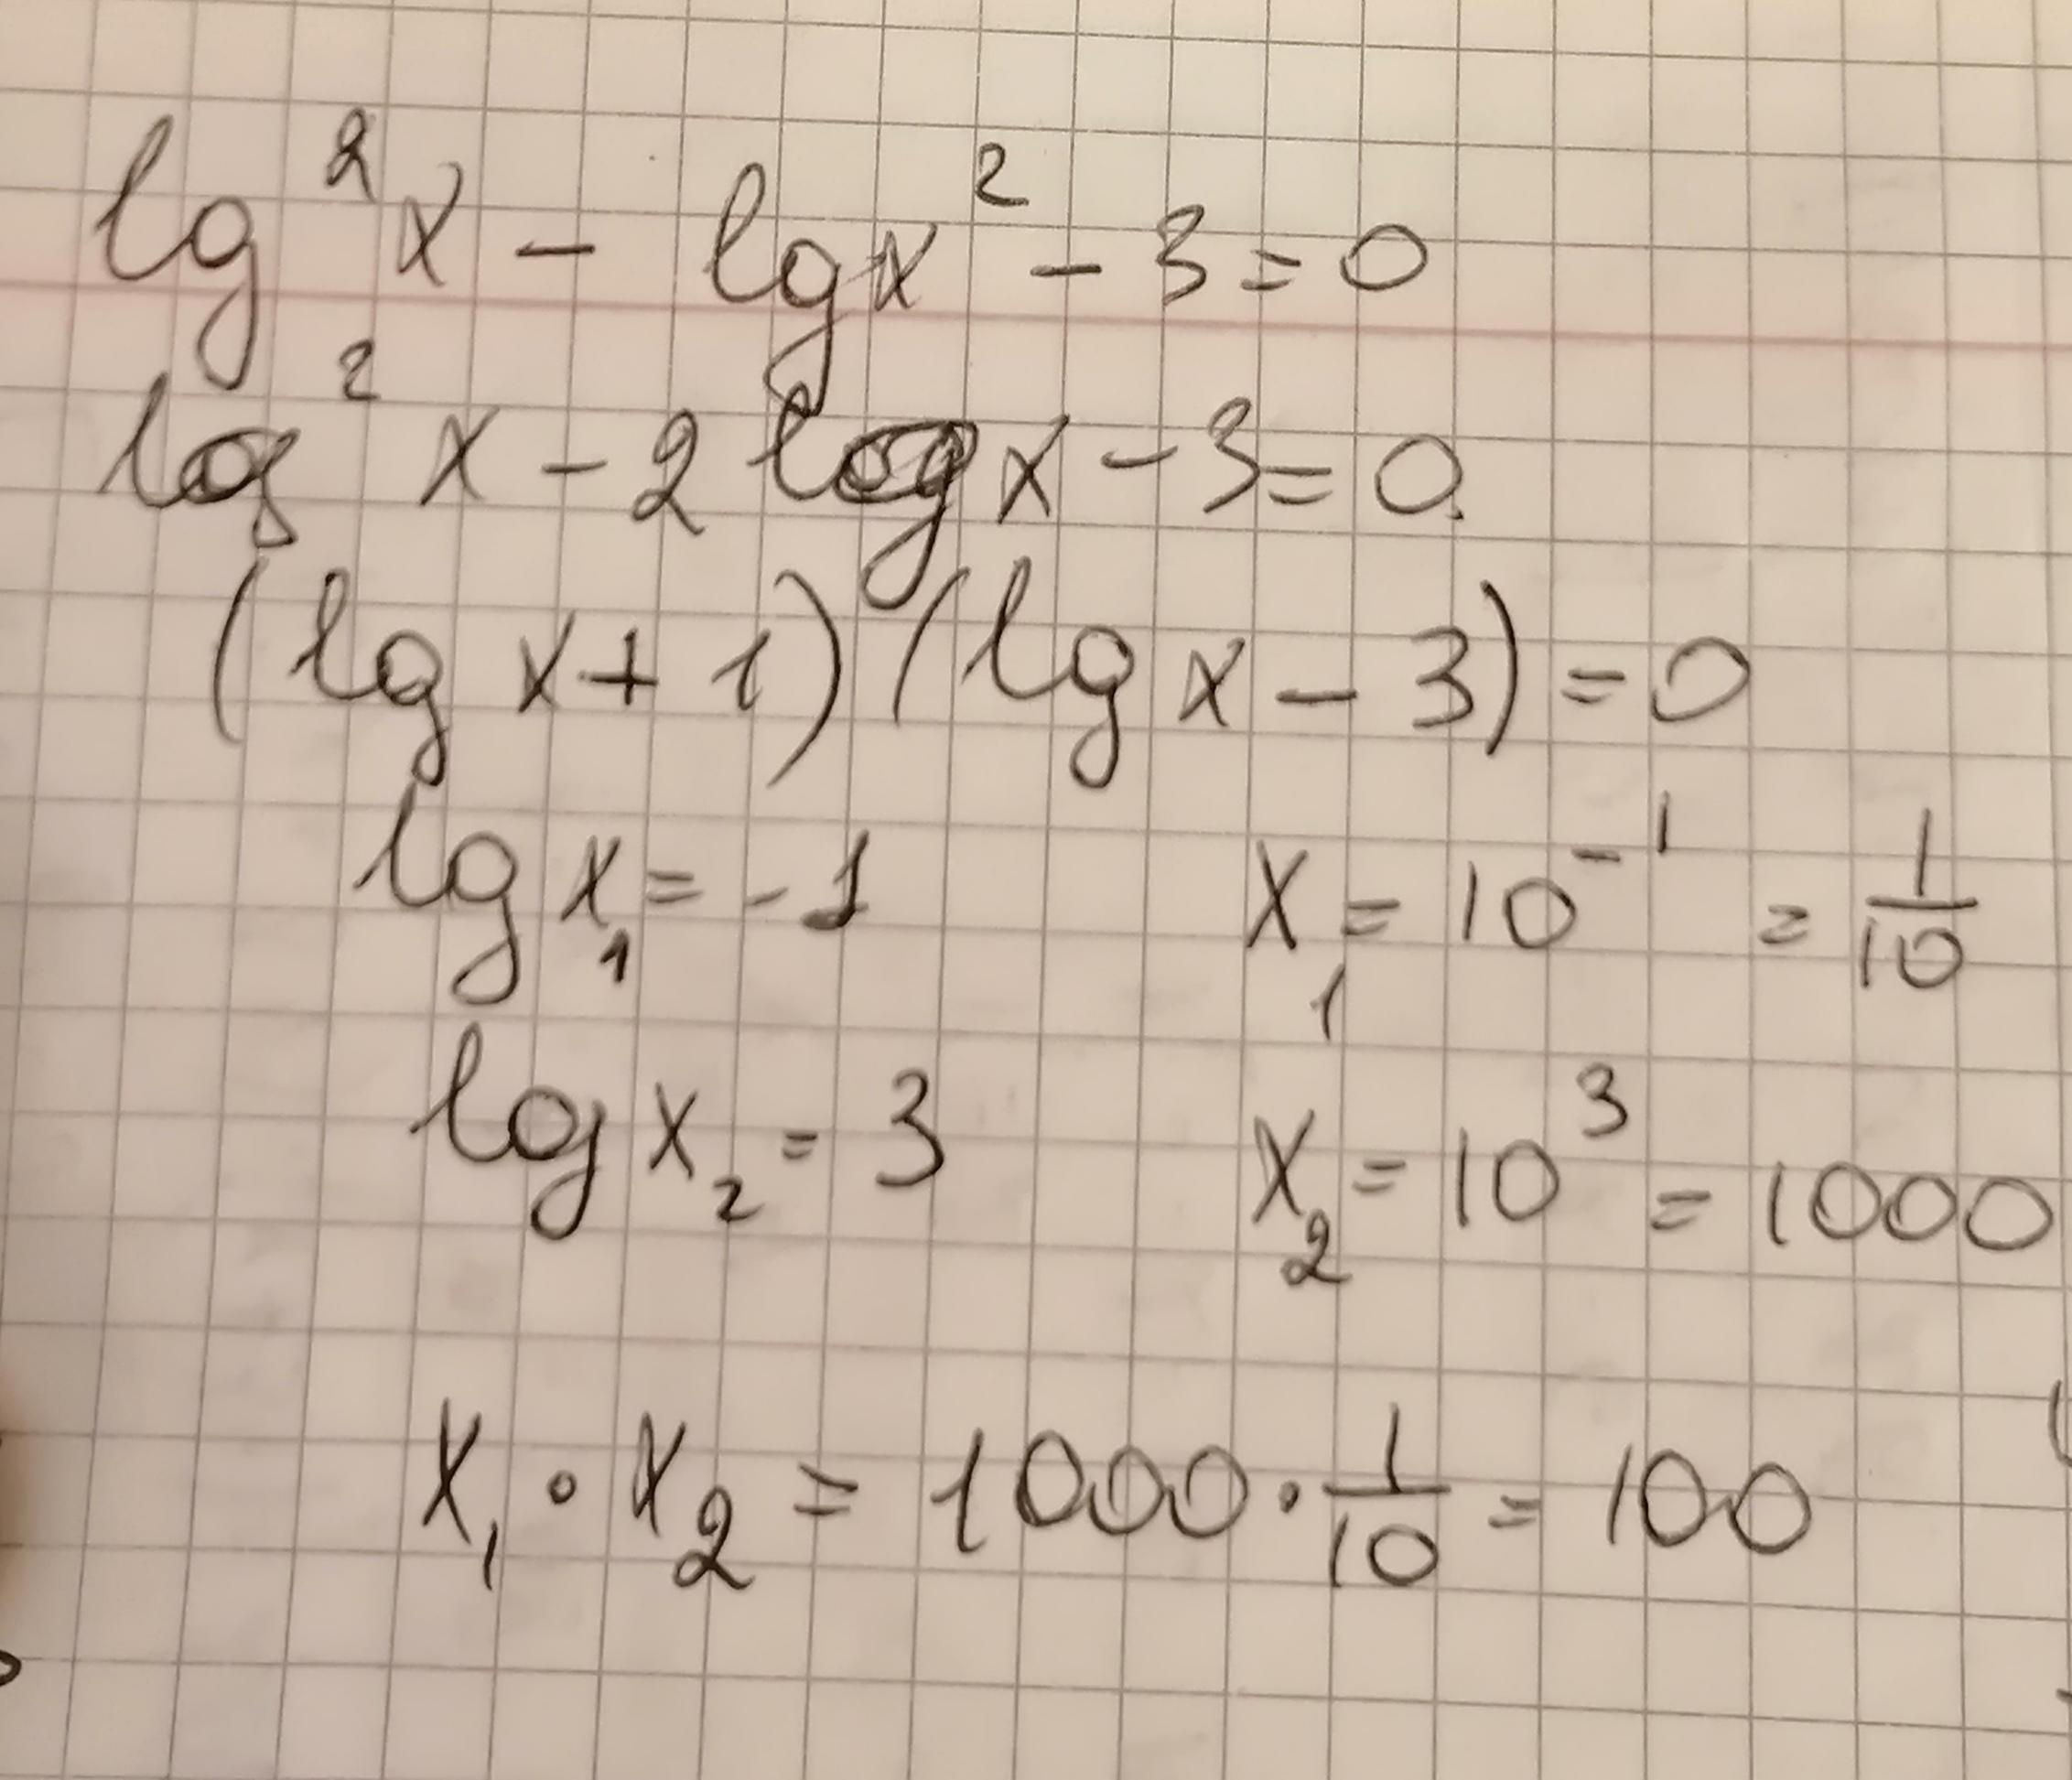 lg²x - lgx² - 3 = 0
log² x - 2 log x - 3 = 0
(lg x + 1) (lg x - 3) = 0
lg x₁ = -1 x₁ = 10⁻¹ = 1/10
log x₂ = 3 x₂ = 10³ = 1000
x₁ · x₂ = 1000 · 1/10 = 100